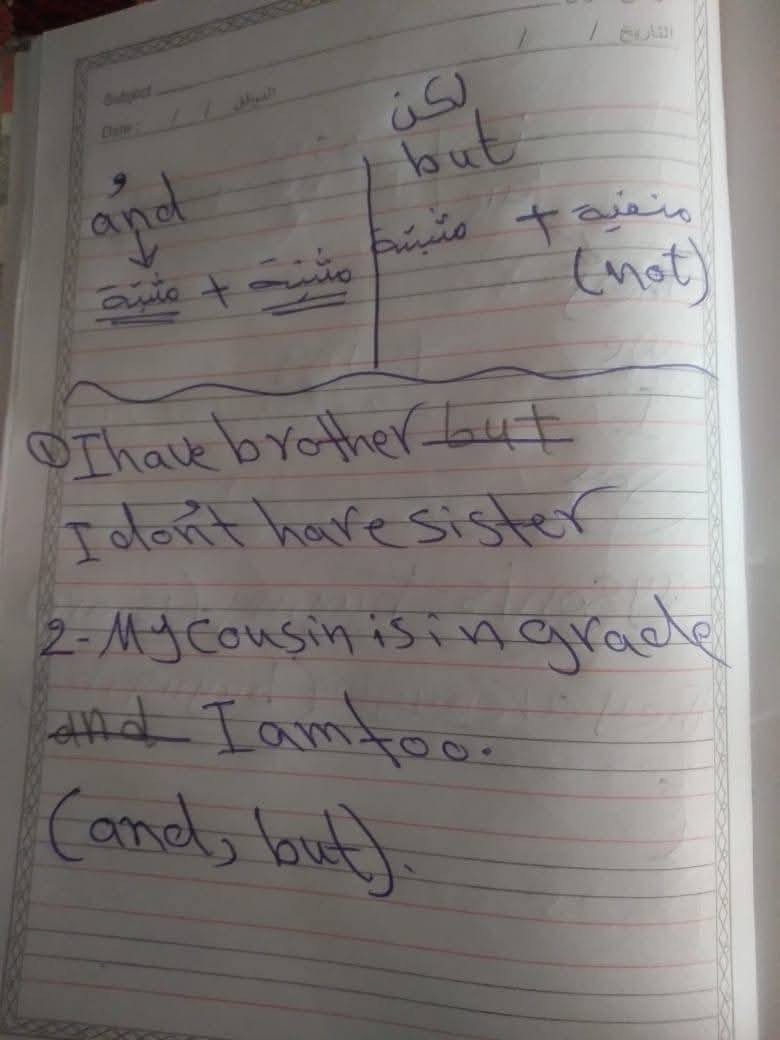 التاريخ / /
Subject
Date: / / الموافق
لكن
but
و
and
مثبتة + مثبتة
مثبتة + منفية
(not)
① I have brother but
I don't have sister
2- My cousin is in grade
and I am too.
(and, but).